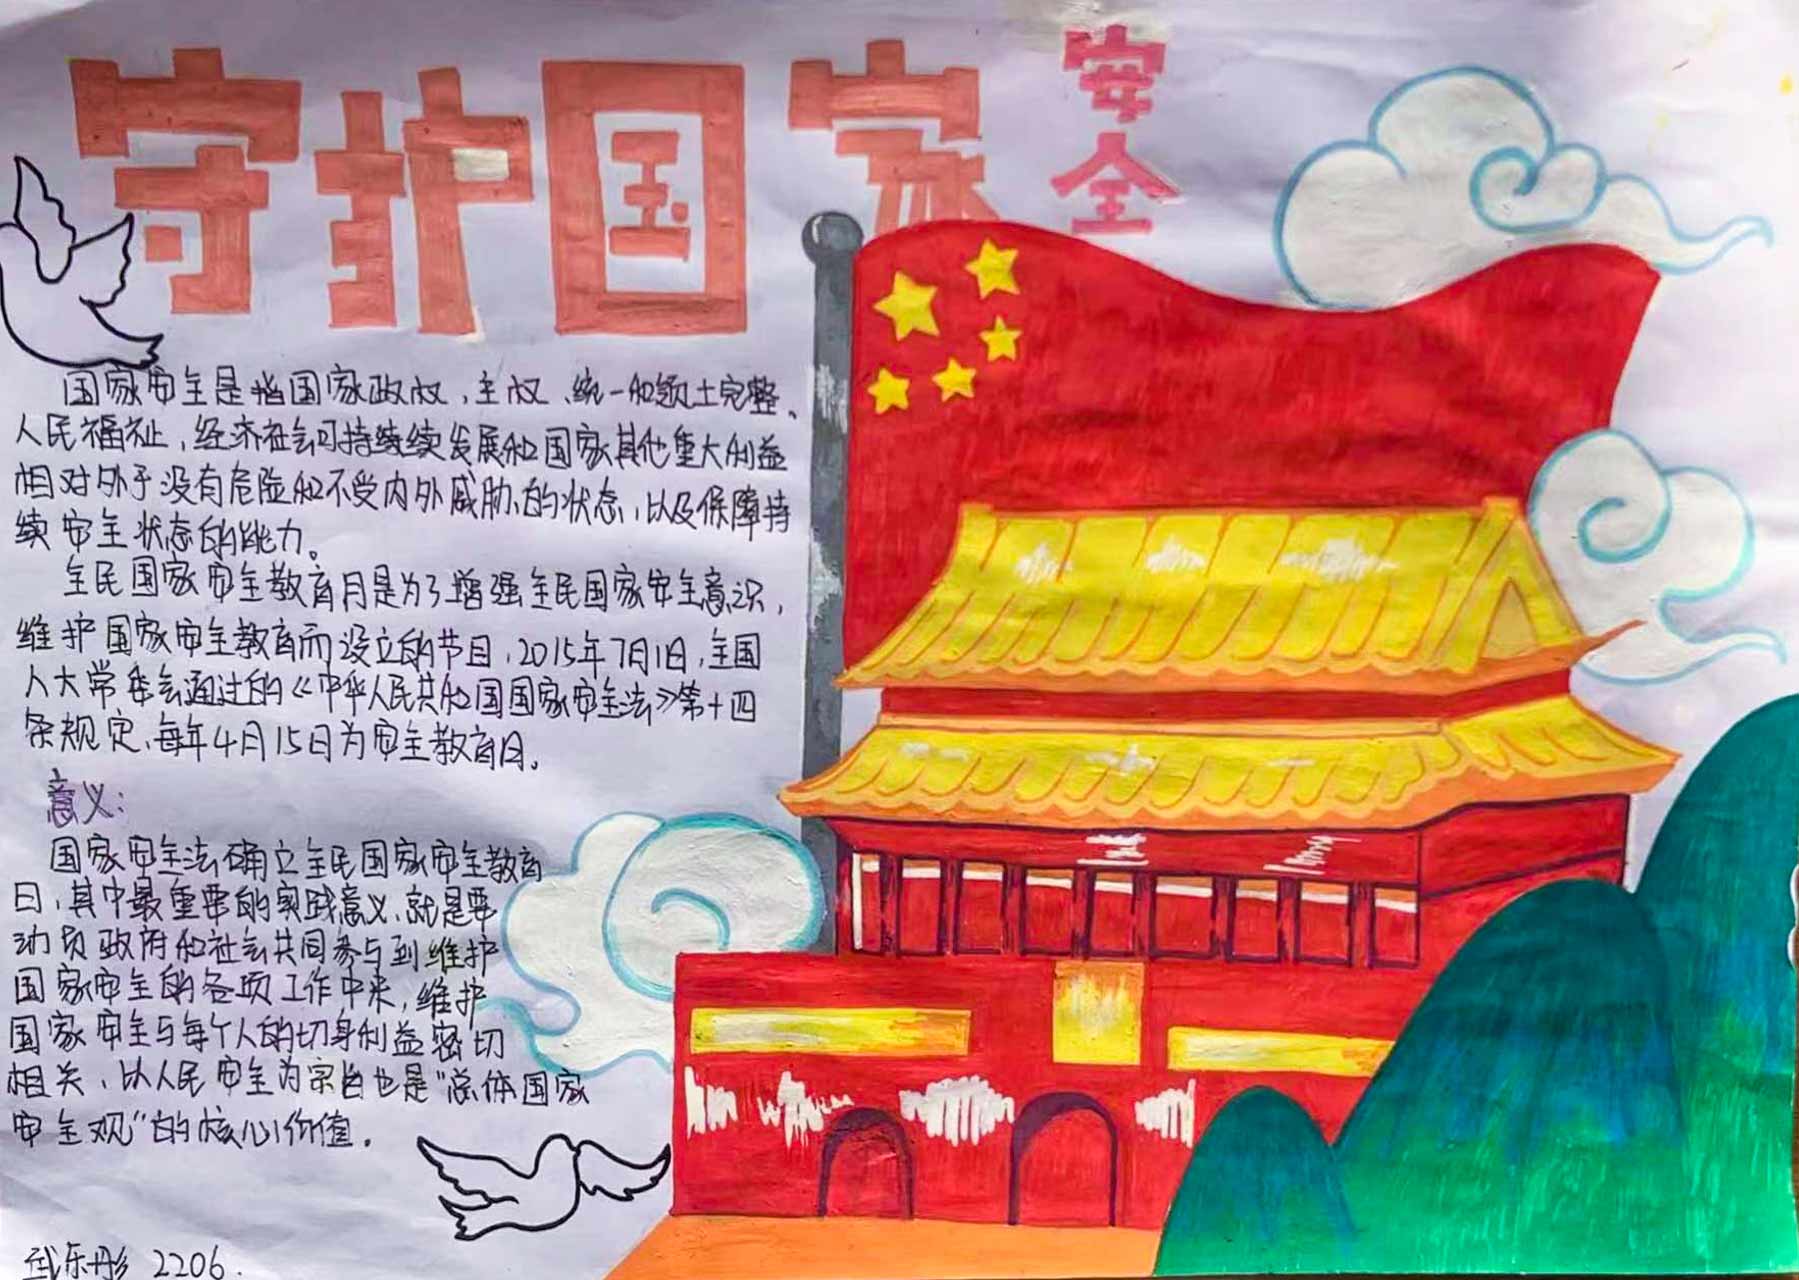 守护国家安全
国家安全是指国家政权、主权、统一和领土完整、
人民福祉，经济社会可持续续发展和国家其他重大利益
相对外于没有危险和不受内外威胁的状态，以及保障持
续安全状态的能力。
全民国家安全教育月是为了增强全民国家安全意识，
维护国家安全教育而设立的节目，2015年7月1日，全国
人大常委会通过的《中华人民共和国国家安全法》第十四
条规定、每年4月15日为安全教育日。
意义：
国家安全法确立全民国家安全教育
日，其中最重要的实践意义，就是要
动员政府和社会共同参与到维护
国家安全的各项工作中来，维护
国家安全与每个人的切身利益密切
相关、以人民安全为宗旨也是“总体国家
安全观”的核心价值。
武乐彤 2206.